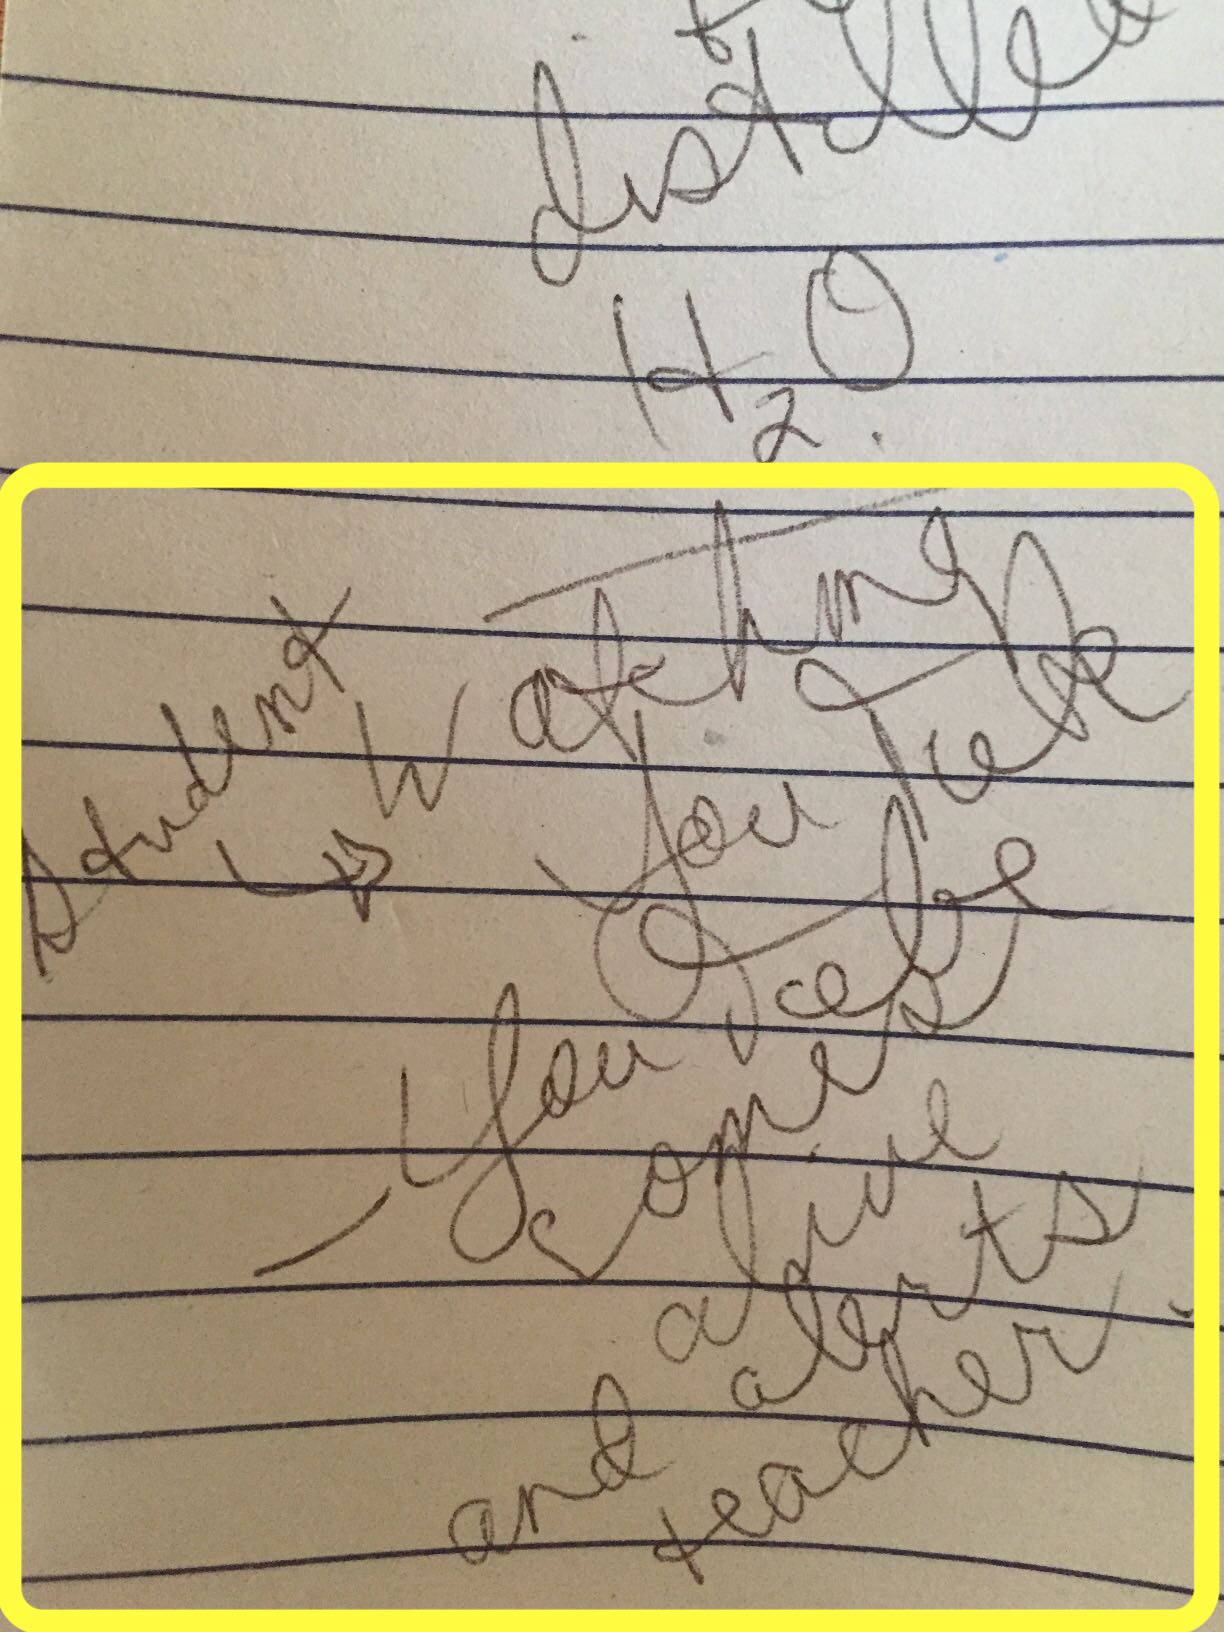 distilled
H₂O.
Student
↳ Wathing
You Tube
– You Tube
comes
alive
and alerts
teacher.